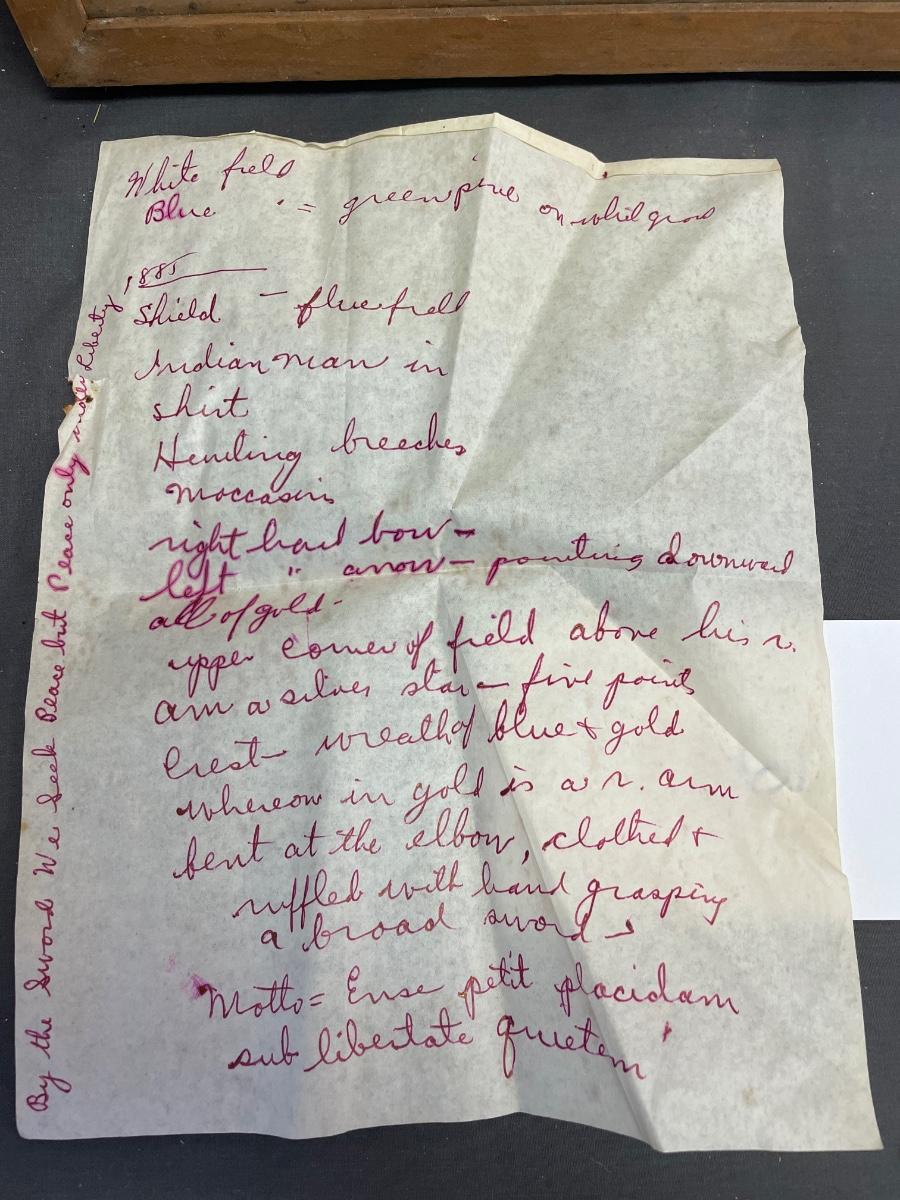 White field
Blue " = green pine on whit grou
1885
Shield — blue field
Indian man in
shirt
Hunting breeches
moccasins
right hand bow —
left " arrow — pointing downward
all of gold -
upper corner of field above his r.
arm a silver star — five points
Crest — wreath of blue & gold
whereon in gold is a r. arm
bent at the elbow, clothed &
ruffled with hand grasping
a broad sword
Motto = Ense petit placidam
sub libertate quietem
By the Sword We Seek Peace but Peace only under Liberty